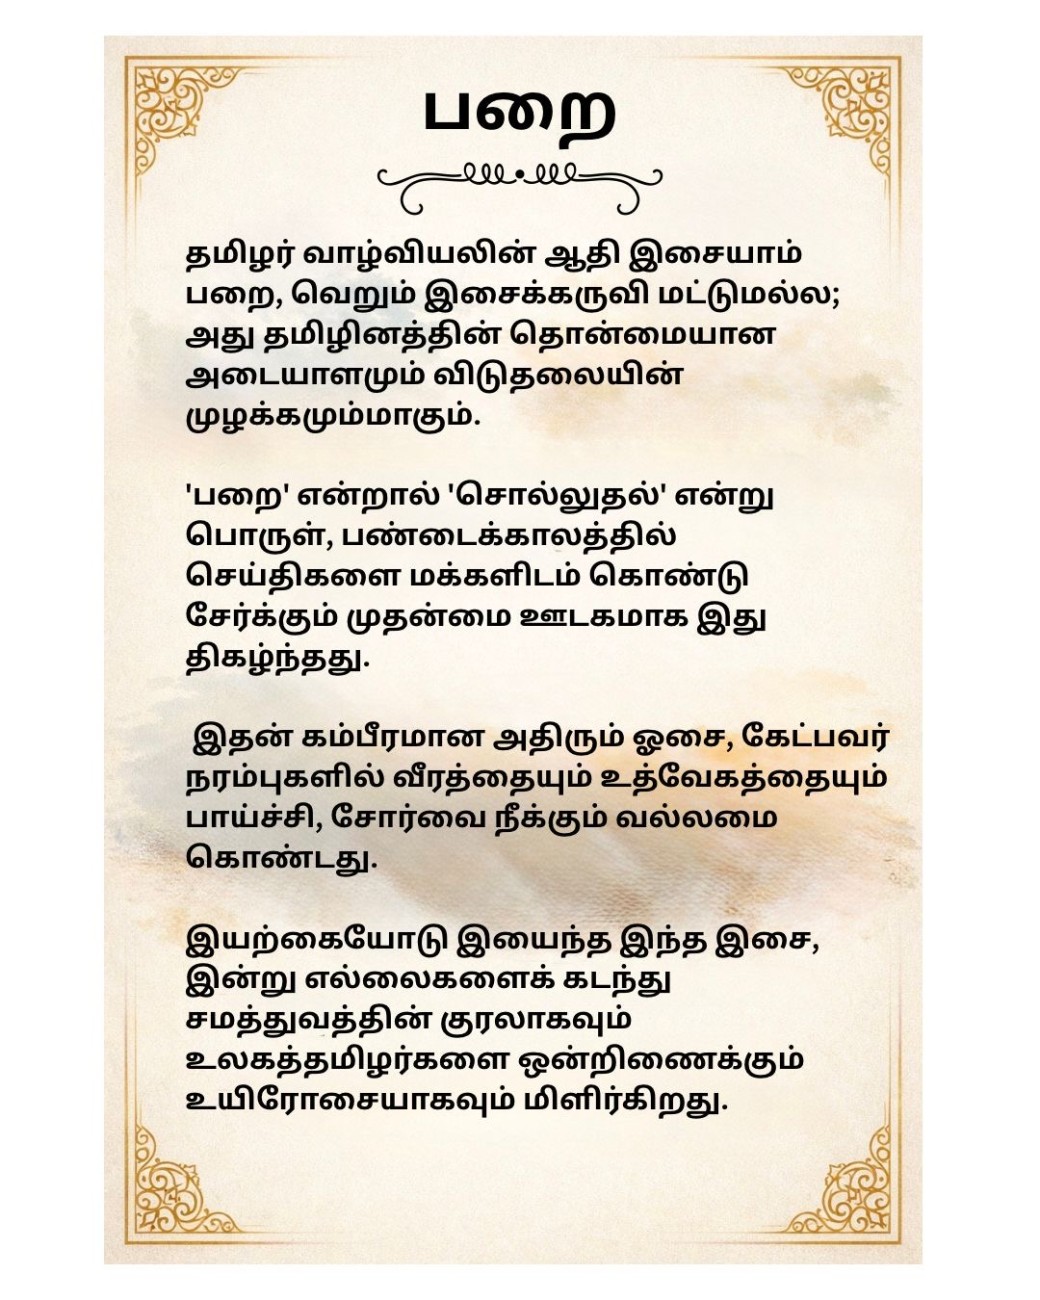 பறை
தமிழர் வாழ்வியலின் ஆதி இசையாம்
பறை, வெறும் இசைக்கருவி மட்டுமல்ல;
அது தமிழினத்தின் தொன்மையான
அடையாளமும் விடுதலையின்
முழக்கமும்மாகும்.
'பறை' என்றால் 'சொல்லுதல்' என்று
பொருள், பண்டைக்காலத்தில்
செய்திகளை மக்களிடம் கொண்டு
சேர்க்கும் முதன்மை ஊடகமாக இது
திகழ்ந்தது.
இதன் கம்பீரமான அதிரும் ஓசை, கேட்பவர்
நரம்புகளில் வீரத்தையும் உத்வேகத்தையும்
பாய்ச்சி, சோர்வை நீக்கும் வல்லமை
கொண்டது.
இயற்கையோடு இயைந்த இந்த இசை,
இன்று எல்லைகளைக் கடந்து
சமத்துவத்தின் குரலாகவும்
உலகத்தமிழர்களை ஒன்றிணைக்கும்
உயிரோசையாகவும் மிளிர்கிறது.